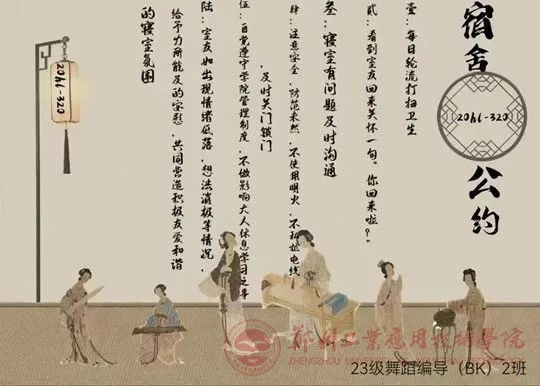 宿舍
公约
壹:每日轮流打扫卫生
贰:看到室友回来关怀一句。你回来啦?"
叁:寝室有问题及时沟通
肆:注意安全,防范未然,不使用明火,不私拉电线
,及时关门锁门
伍:自觉遵守学院管理制度,不做影响大人休息学习之事
陆:室友如出现情绪低落,想法消极等情况,
给予力所能及的安慰,共同营造积极友爱和谐
的寝室氛围
郑州工业应用技术学院
23级舞蹈编导(BK)2班